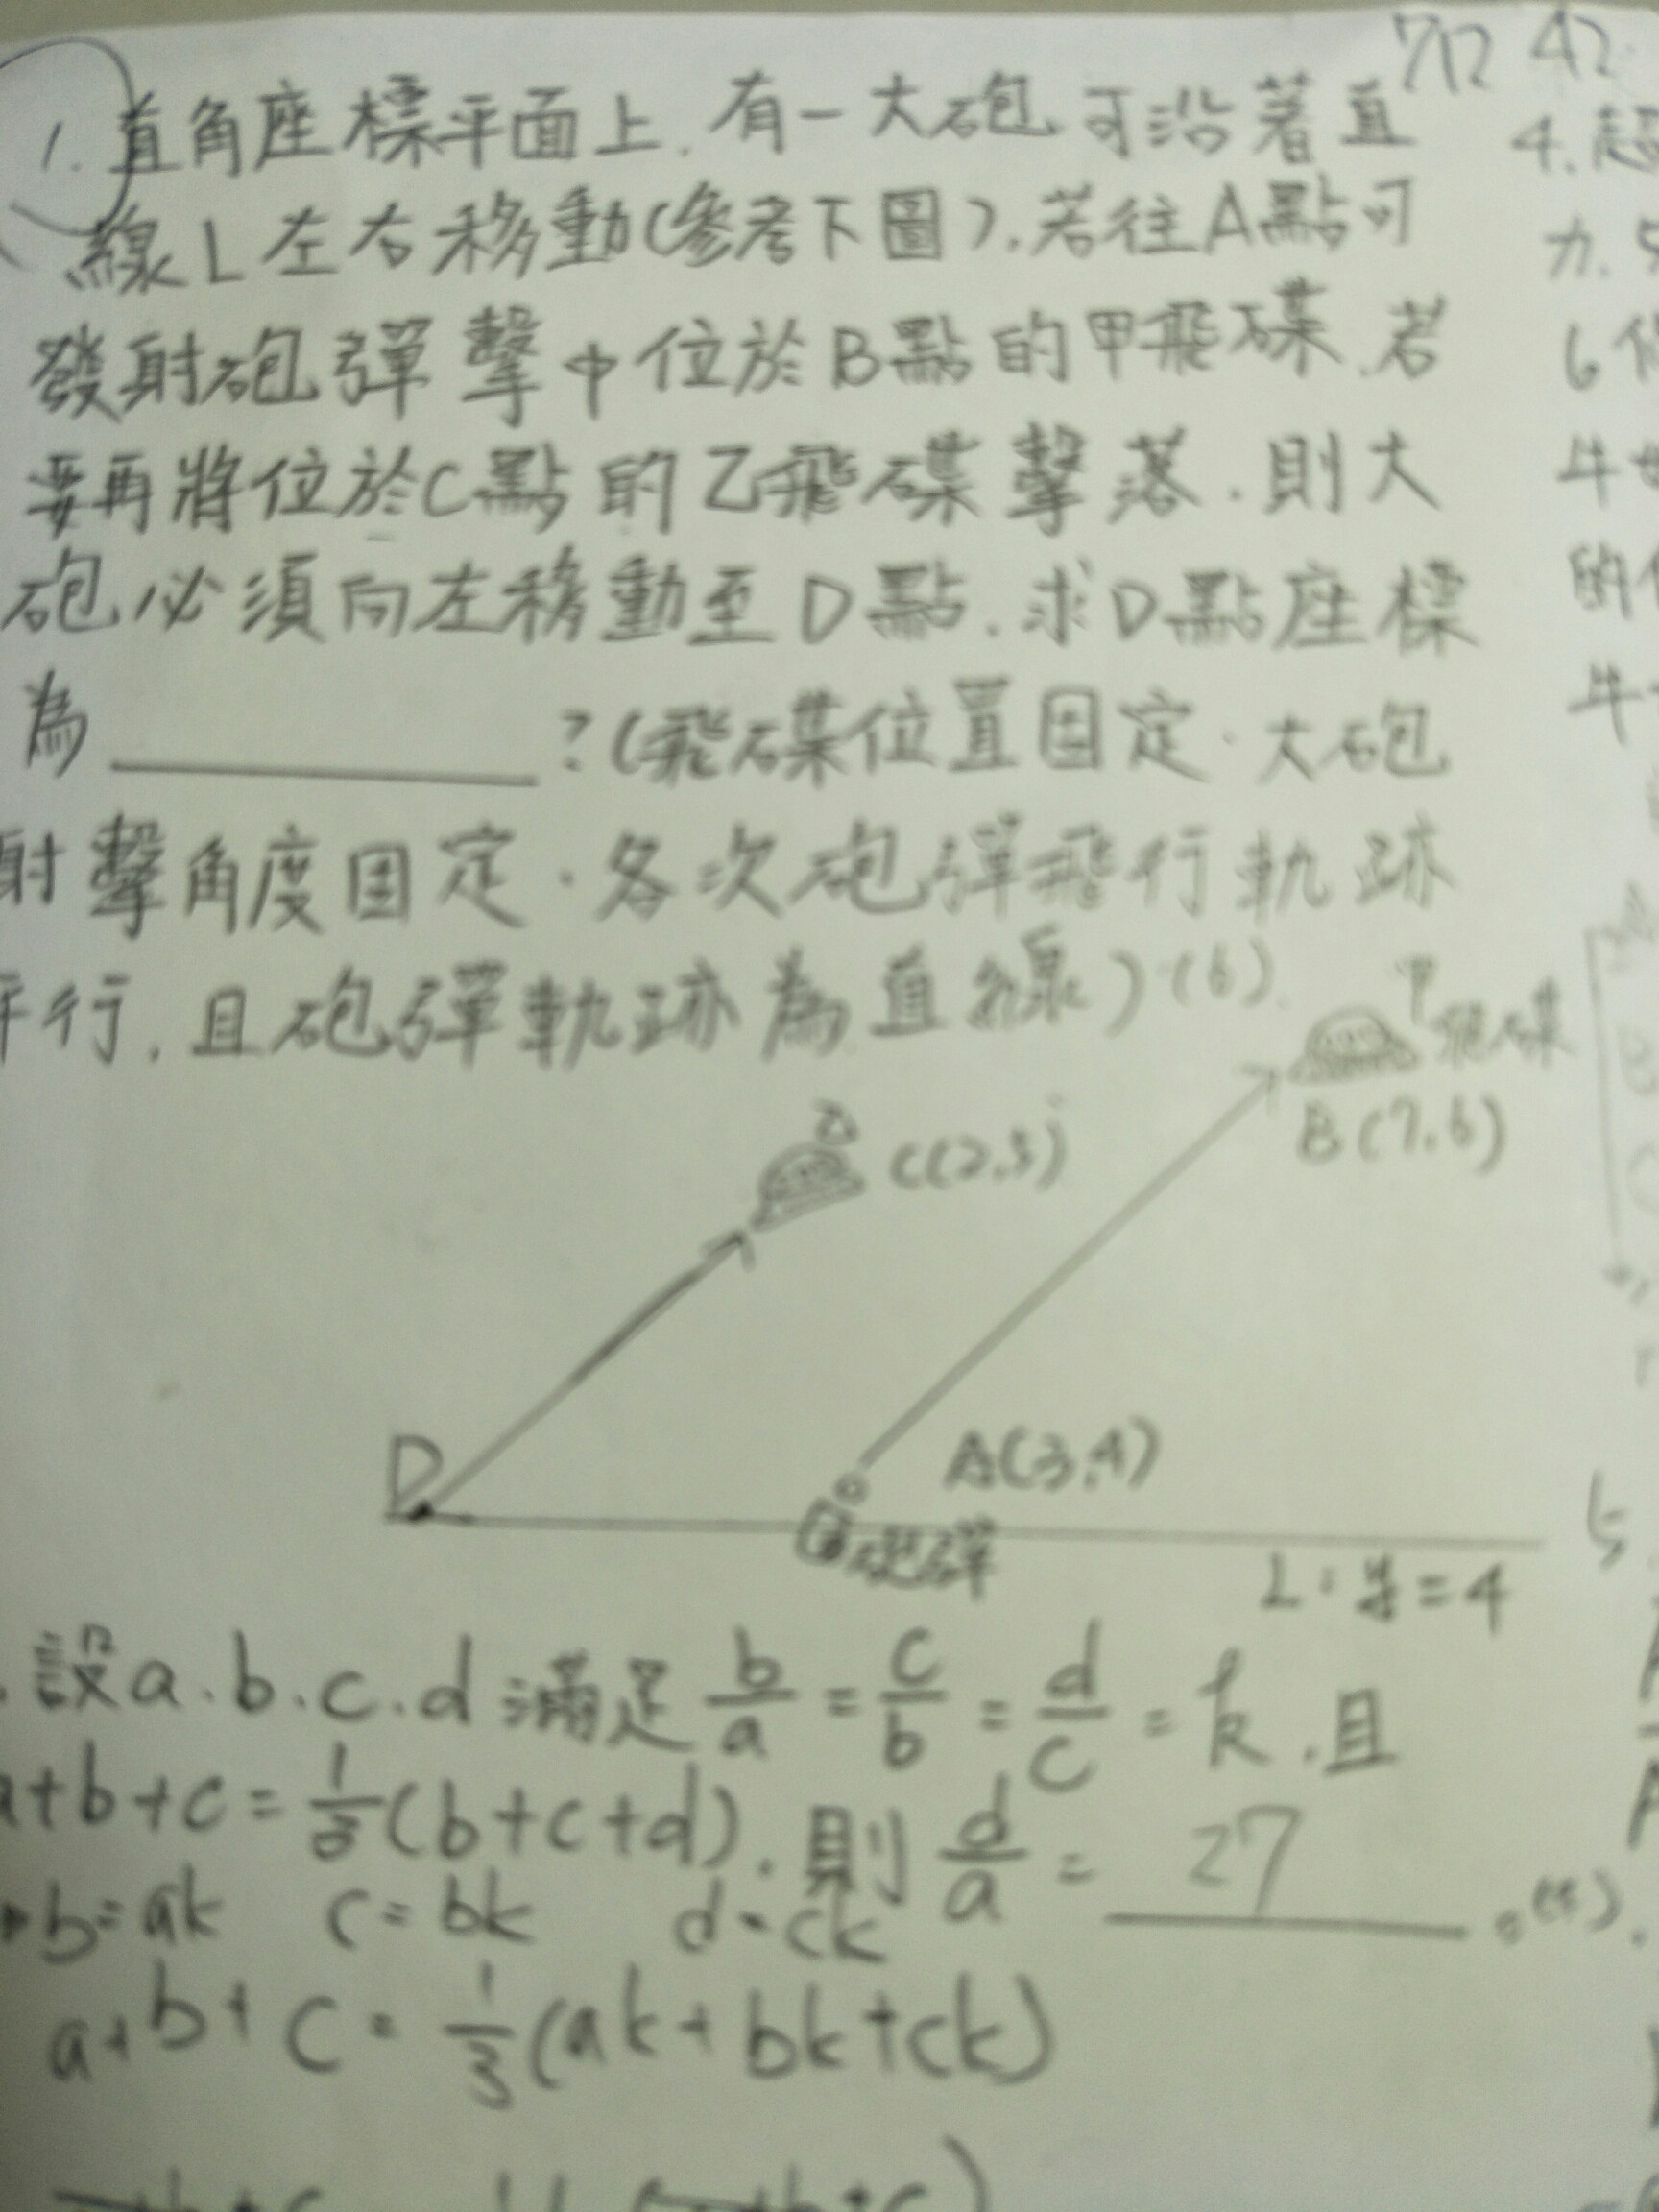 712 42
1. 直角座標平面上.有一大砲可沿著直
線L左右移動(參考下圖).若往A點可
發射砲彈擊中位於B點的甲飛碟.若
要再將位於C點的乙飛碟擊落.則大
砲必須向左移動至D點.求D點座標
為 ?(飛碟位置固定.大砲
射擊角度固定.各次砲彈飛行軌跡
平行.且砲彈軌跡為直線)(6)
甲飛碟
B(7.6)
乙
C(2.5)
D
A(3.4)
砲彈
L:y=4
設a.b.c.d滿足b/a=c/b=d/c=k.且
a+b+c=1/3(b+c+d).則d/a=27。
b=ak c=bk d=ck
a+b+c=1/3(ak+bk+ck)
4.
力.5
6
牛
的
牛